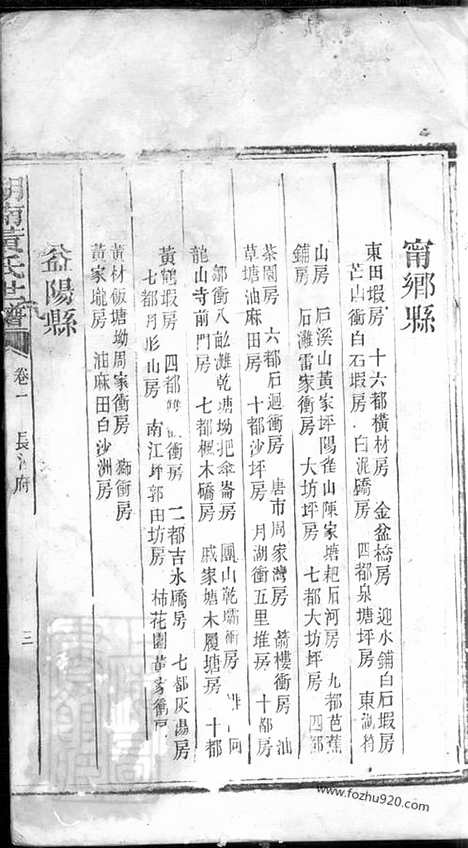 甯鄉縣
東田瑕房　十六都橫材房　金盆橋房　迎水鋪白石瑕房
芒山衝白石瑕房　白泥礄房　四都泉塘坪房　東
山房　石溪山黃家坪陽雀山陳家塘耙石河房　九都芭蕉
鋪房　石灘雷家衝房　大坊坪房　七都大坊坪房　四都
茶園房　六都石迴衝房　唐市周家灣房　箭樓衝房　油
草塘油麻田房　十都沙坪房　月湖衝五里堆房　十都房
鄒衝八畝灘乾塘坳把傘崙房　團山乾壩衝房
龍山寺前門房　七都楓木礄房　戚家塘木履塘房　十都
黃鶴瑕房　四都衝房　二都吉水礄房　七都灰湯房
七都月形山房　南江坪郭田坊房　柿花園黃家衝房
黃材板塘坳周家衝房　獅衝房
黃家壠房　油麻田白沙洲房
益陽縣
湖南黃氏世譜　卷一　長沙府　三
www.fozhu920.com